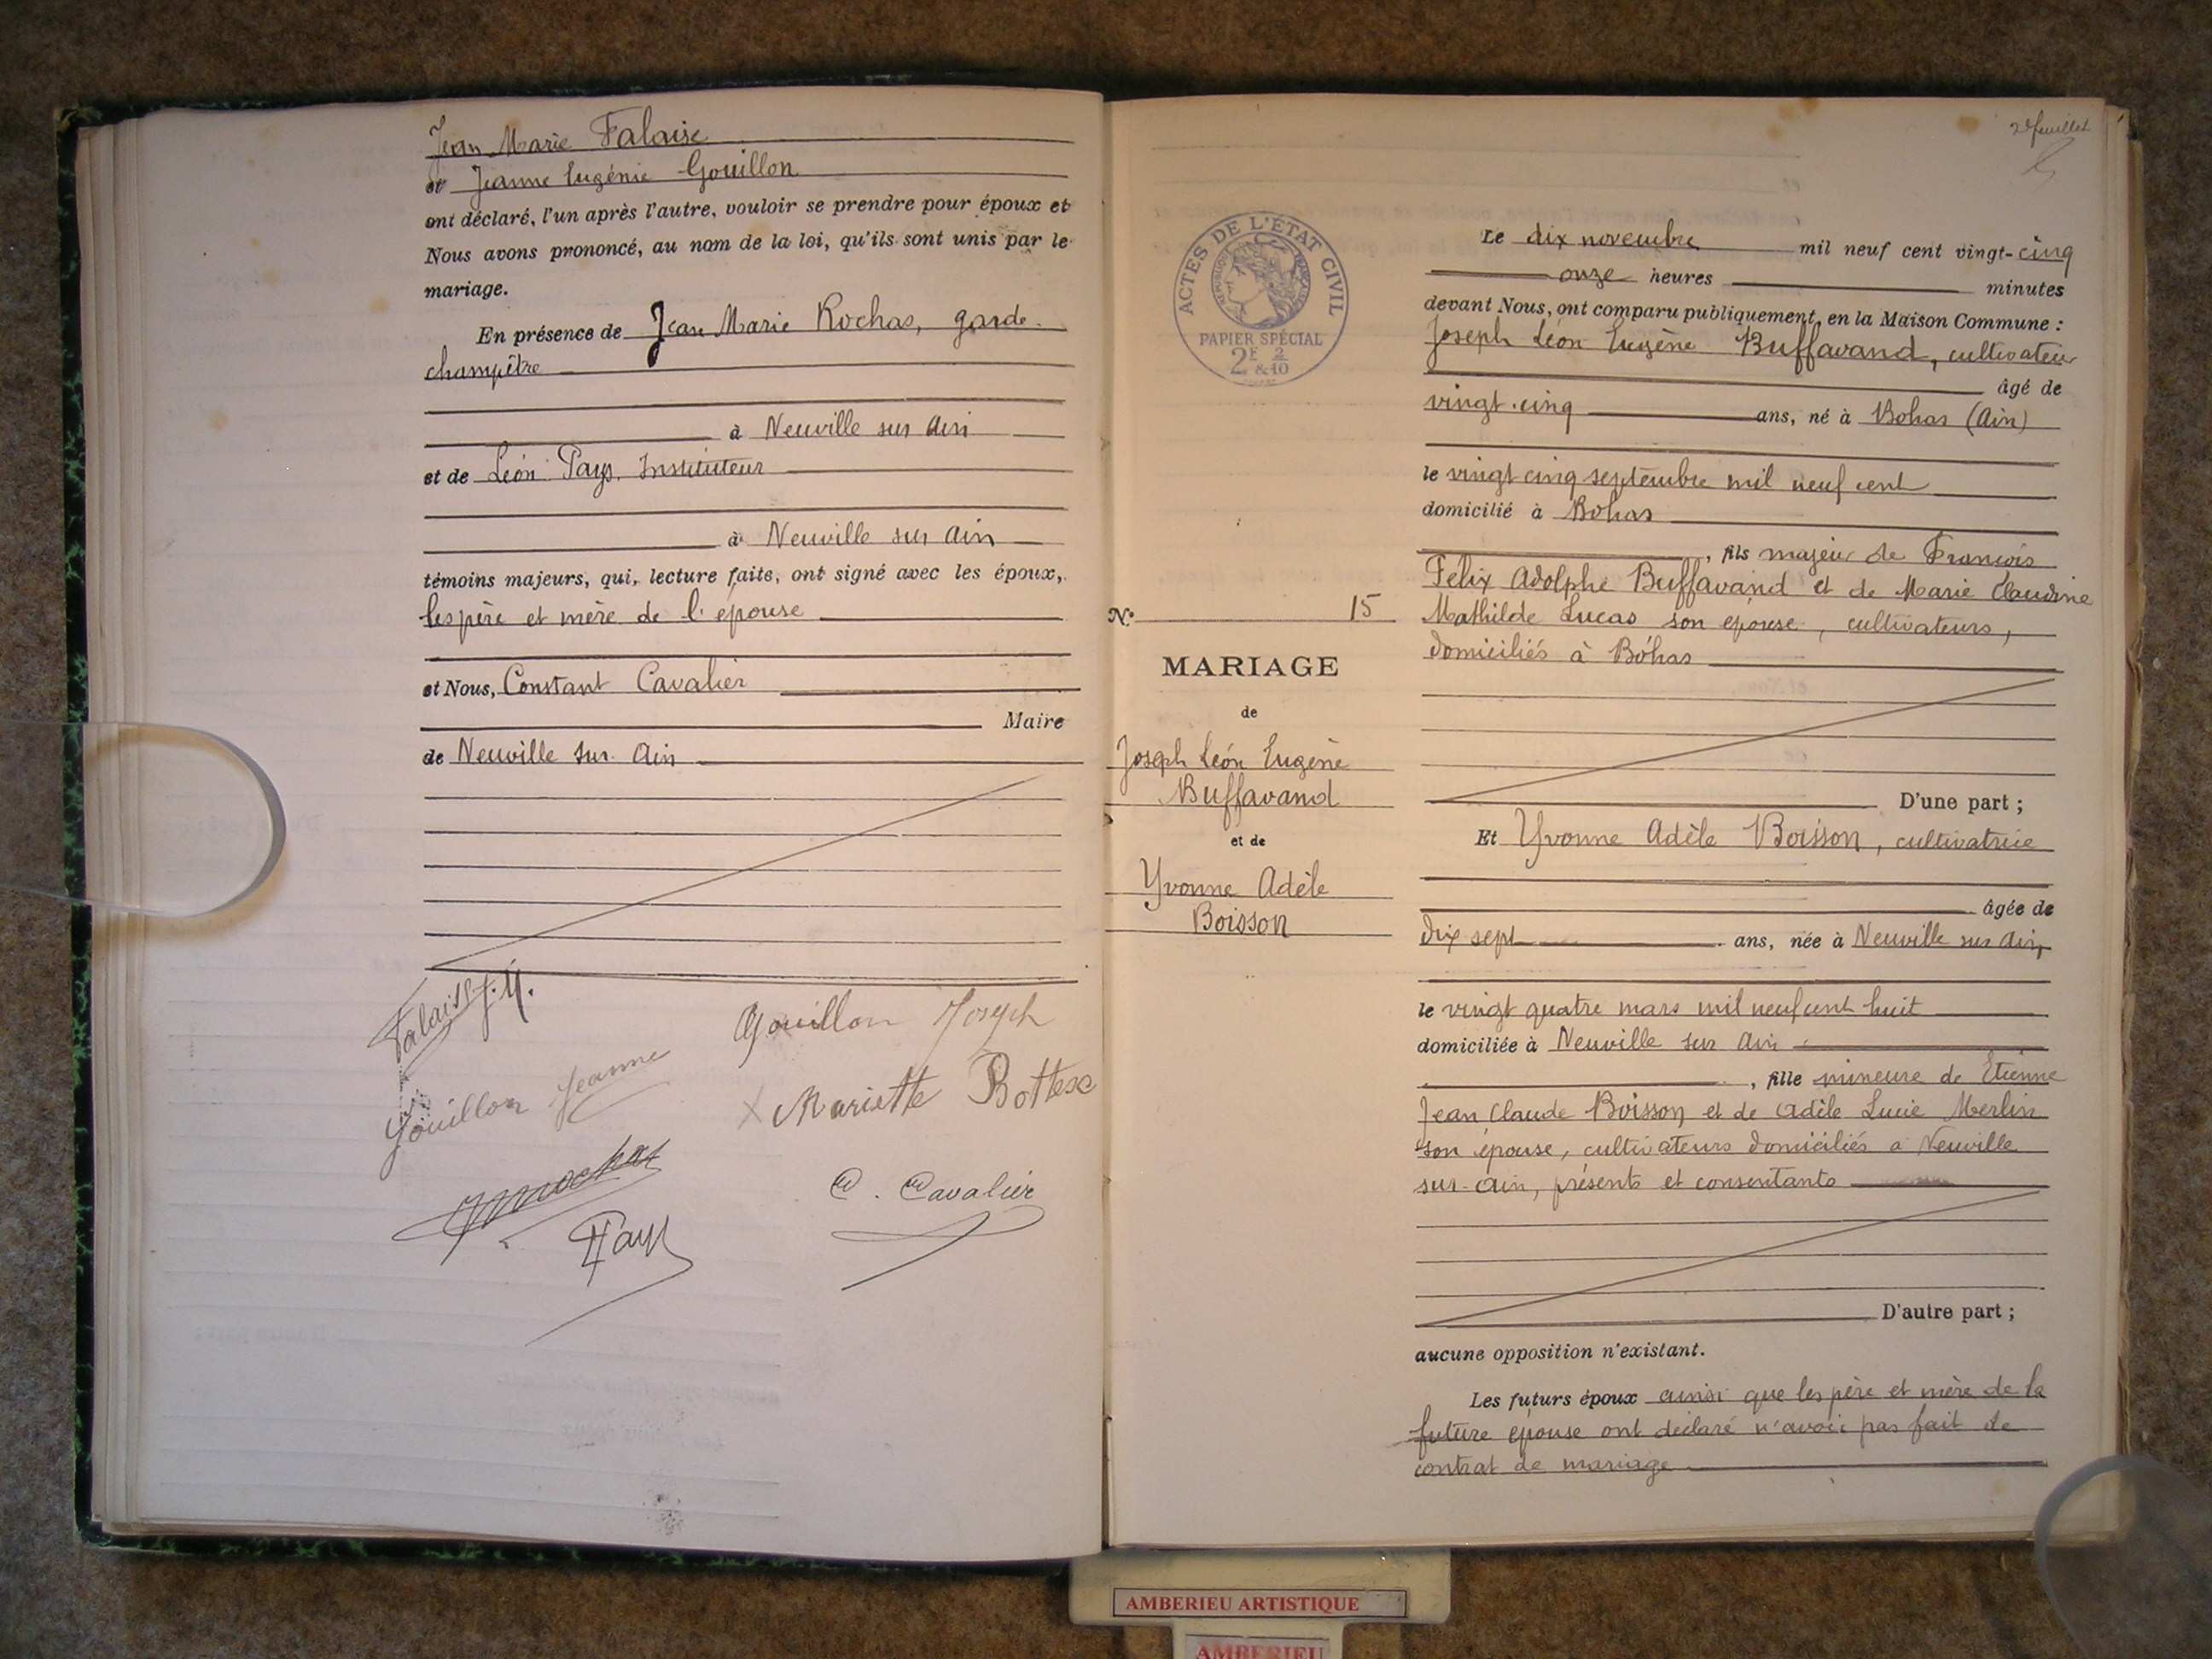 Jean Marie Falaise
et Jeanne Eugénie Gouillon
ont déclaré, l'un après l'autre, vouloir se prendre pour époux et
Nous avons prononcé, au nom de la loi, qu'ils sont unis par le
mariage.
En présence de Jean Marie Rochas, garde-
champêtre
à Neuville sur Ain
et de Léon Pays, Instituteur
à Neuville sur Ain
témoins majeurs, qui, lecture faite, ont signé avec les époux,
les père et mère de l'épouse
et Nous, Constant Cavalier
Maire
de Neuville sur Ain
Falaise J. M.
Gouillon Joseph
Gouillon Jeanne
Mariette Bottex
C. Cavalier
Pays
2e feuillet
ACTES DE L'ÉTAT CIVIL
RÉPUBLIQUE FRANÇAISE
PAPIER SPÉCIAL
2F 2/10 &
N° 15
MARIAGE
de
Joseph Léon Eugène
Buffavand
et de
Yvonne Adèle
Boisson
Le dix novembre mil neuf cent vingt-cinq
onze heures minutes
devant Nous, ont comparu publiquement en la Maison Commune :
Joseph Léon Eugène Buffavand, cultivateur
âgé de
vingt-cinq ans, né à Bohas (Ain)
le vingt cinq septembre mil neuf cent
domicilié à Bohas
, fils majeur de François
Félix Adolphe Buffavand et de Marie Claudine
Mathilde Lucas son épouse, cultivateurs,
domiciliés à Bohas
D'une part ;
Et Yvonne Adèle Boisson, cultivatrice
âgée de
dix sept ans, née à Neuville sur Ain,
le vingt quatre mars mil neuf cent huit
domiciliée à Neuville sur Ain
, fille mineure de Etienne
Jean Claude Boisson et de Adèle Lucie Merlin
son épouse, cultivateurs domiciliés à Neuville
sur-Ain, présents et consentants
D'autre part ;
aucune opposition n'existant.
Les futurs époux ainsi que les père et mère de la
future épouse ont déclaré n'avoir pas fait de
contrat de mariage
AMBERIEU ARTISTIQUE
AMBERIEU